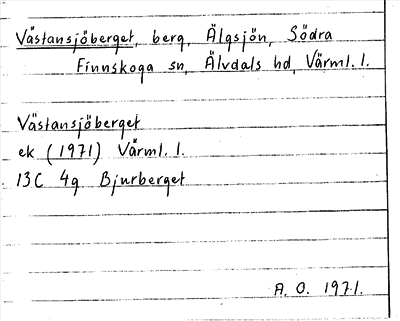 Västansjöberget, berg, Älgsjön, Södra
Finnskoga sn, Älvdals hd, Värml. l.
Västansjöberget
ek (1971) Värml. l.
13C 4g Bjurberget
A. O. 1971.